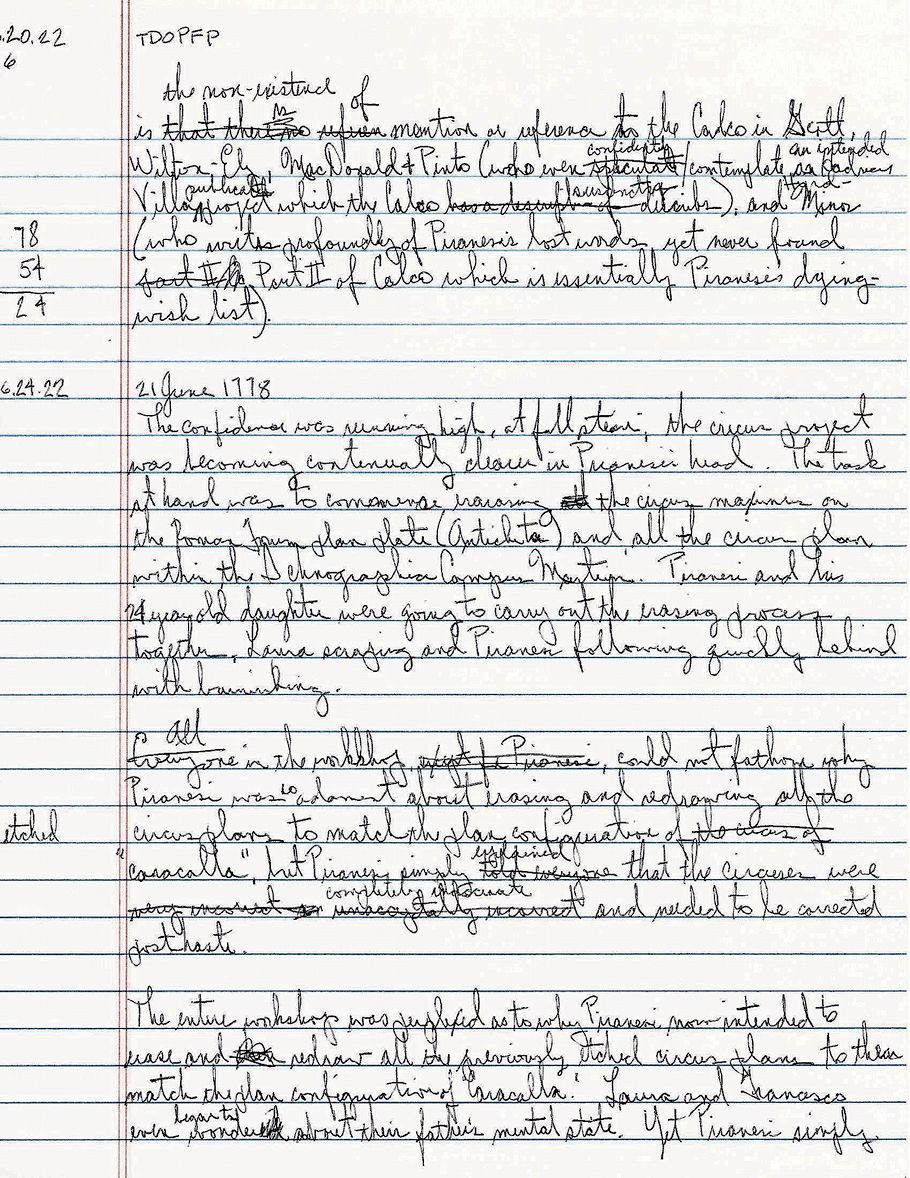 .20.22 TDOPFP
6
the non-existence of
is that there is no mention or reference to the Calco in Scott,
Wilton-Ely, MacDonald & Pinto (who even confidently speculate/contemplate an intended
Villa publication project which the Calco has a descript of describes), and Minor
78 (who writes profoundly of Piranesi's last words, yet never found
54 Part II of Calco which is essentially Piranesi's dying-
24 wish list).
6.24.22 21 June 1778
The confidence was running high, at full steam, the circus project
was becoming continually clearer in Piranesi's head. The task
at hand was to commence erasing the circus maximus on
the Roman Forum plan plate (Antichita) and all the circus plans
within the Ichnographia Campus Martium. Piranesi and his
24 year old daughter were going to carry out the erasing process
together, Laura scraping and Piranesi following quickly behind
with burnishing.
All
Everyone in the workshop, except for Piranesi, could not fathom why
Piranesi was so "adamant" about erasing and redrawing all the
etched circus plans to match the plan configuration of the circus of
explained
"Caracalla", but Piranesi simply told everyone that the circuses were
completely inaccurate
very incorrect unacceptably incorrect and needed to be corrected
post haste.
The entire workshop was perplexed as to why Piranesi now intended to
erase and redraw all the previously etched circus plans to then
match the plan configuration of "Caracalla." Laura and Francesco
even began to wonder about their father's mental state. Yet Piranesi simply